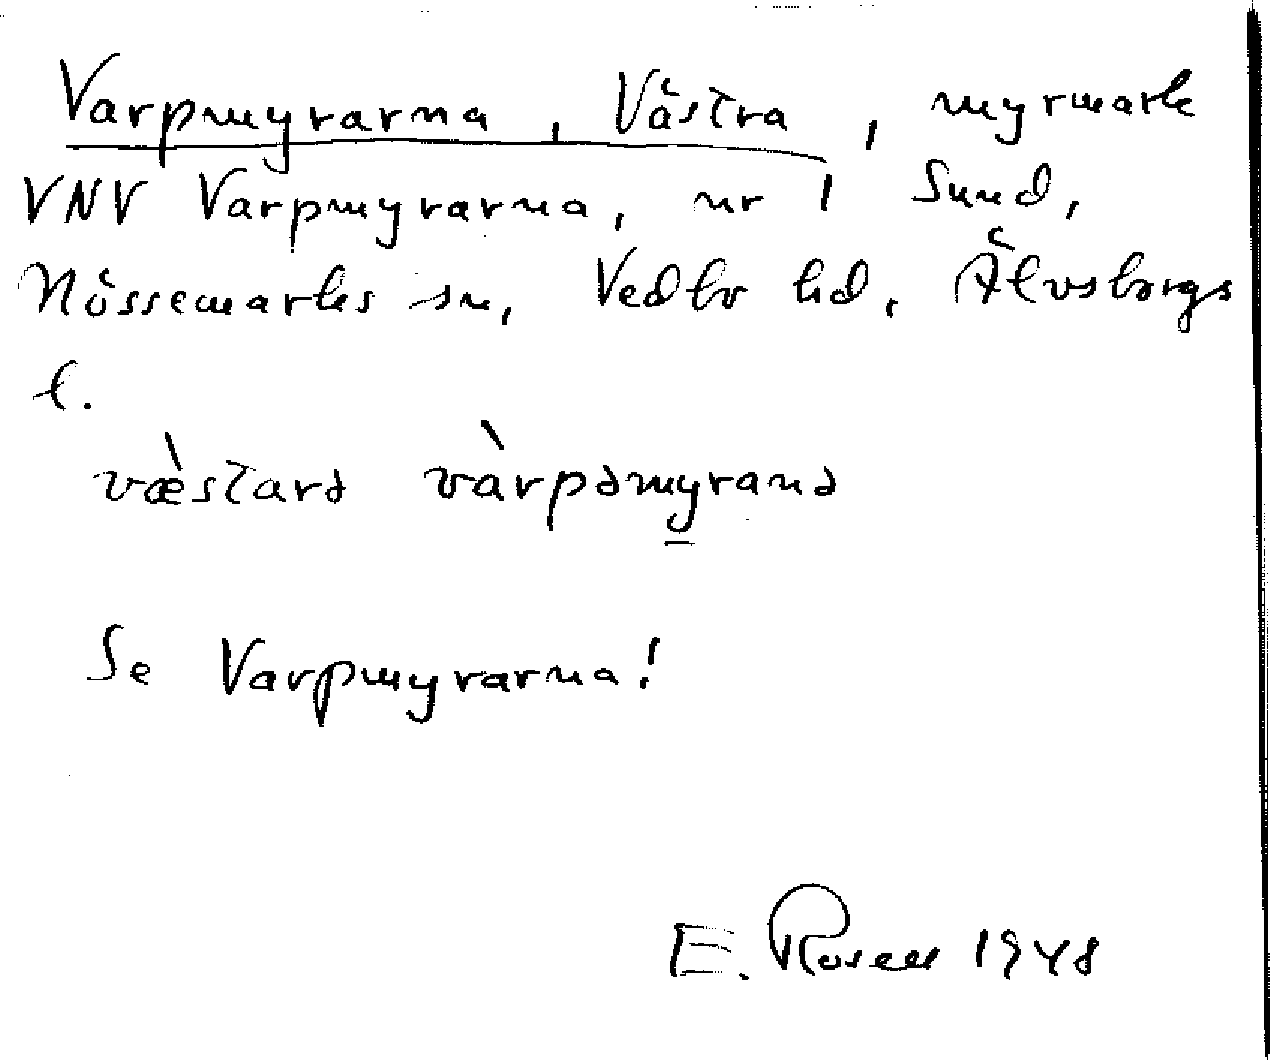 Varpmyrarna, Västra, myrmark
VNV Varpmyrarna, nr 1 Sund,
Nössemarks sn, Vedbo hd, Älvsborgs
l.
væ̀starə vàrpəmyranə
Se Varpmyrarna!
E. Rosell 1948